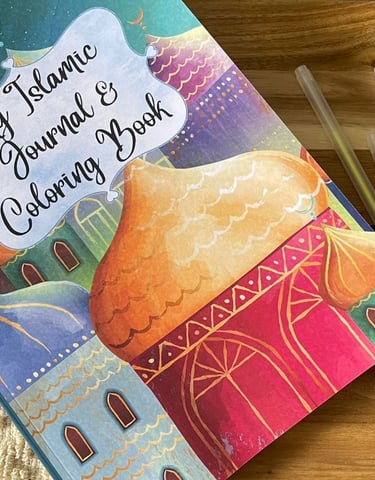 y Islamic
Journal &
Coloring Book